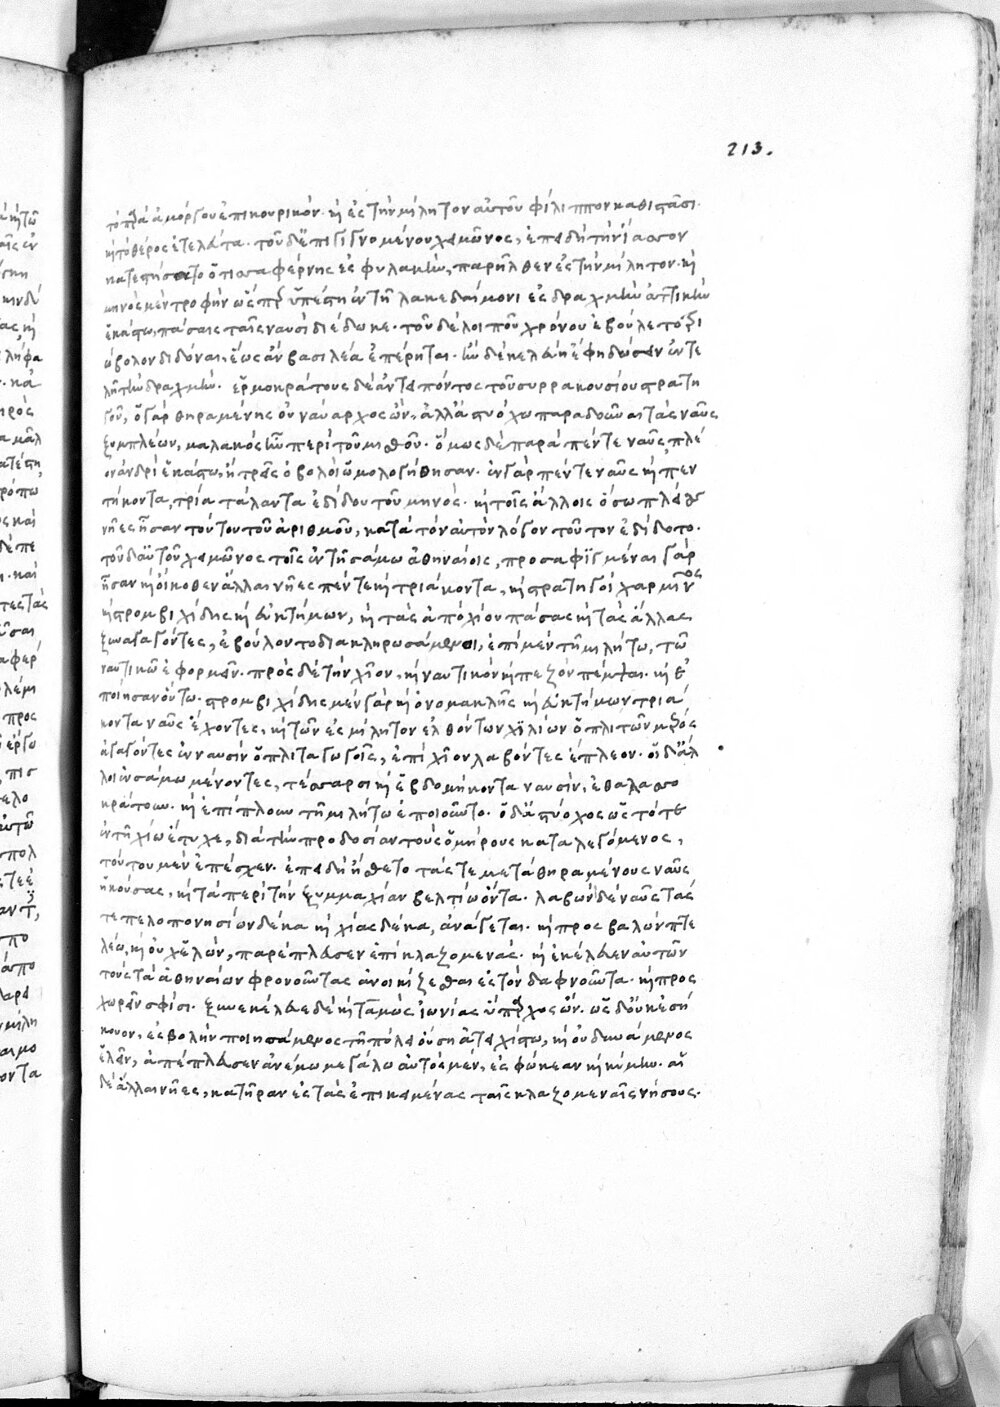 213.
τὸ παρὰ ἀμόργου ἐπικουρικόν· καὶ ἐς τὴν μίλητον αὐτοῦ φίλιππον καθιστᾶσι·
καὶ τὸ θέρος ἐτελεύτα· τοῦ δ' ἐπιγιγνομένου χειμῶνος, ἐπειδὴ τὴν ἴασσον
κατεστήσατο ὁ τισσαφέρνης ἐς φυλακὴν, παρῆλθεν ἐς τὴν μίλητον· καὶ
μηνὸς μὲν τροφὴν ὥσπερ ὑπέστη ἐν τῇ λακεδαίμονι ἐς δραχμὴν ἀττικὴν
ἑκάστω, πάσαις ταῖς ναυσὶ διέδωκε· τοῦ δὲ λοιποῦ χρόνου ἐβούλετο τρι
ώβολον διδόναι, ἕως ἂν βασιλέα ἐπέρηται· ἢν δὲ κελεύη ἔφη δώσειν ἐντε
λῆ τὴν δραχμὴν· ἑρμοκράτους δὲ ἀντειπόντος τοῦ συρρακουσίου στρατη
γοῦ, ὁ γὰρ θηραμένης οὐ ναύαρχος ὢν, ἀλλ' ἀστυόχω παραδοῦναι τὰς ναῦς
ξυμπλέων, μαλακὸς ἦν περὶ τοῦ μισθοῦ· ὅμως δὲ παρὰ πέντε ναῦς πλέ
ον ἀνδρὶ ἑκάστω, ἢ τρεῖς ὀβολοὶ ὡμολογήθησαν· ἐς γὰρ πέντε ναῦς καὶ πεν
τήκοντα, τρία τάλαντα ἐδίδου τοῦ μηνός· καὶ τοῖς ἄλλοις ὅσω πλείους
νῆες ἦσαν τούτου τοῦ ἀριθμοῦ, κατὰ τὸν αὐτὸν λόγον τοῦτον ἐδίδοτο·
τοῦ δ' αὐτοῦ χειμῶνος τοῖς ἐν τῇ σάμω ἀθηναίοις, προσαφιγμέναι γὰρ
ἦσαν καὶ οἴκοθεν ἄλλαι νῆες πέντε καὶ τριάκοντα, καὶ στρατηγοὶ χαρμῖνος
καὶ στρομβιχίδης καὶ εὐκτήμων, καὶ τὰς ἀπὸ χίου πάσας καὶ τὰς ἄλλας
ξυναγαγόντες, ἐβούλοντο διακληρωσάμενοι, ἐπὶ μὲν τῇ μιλήτω, τῶ
ναυτικῶ ἐφορμεῖν· πρὸς δὲ τὴν χίον, καὶ ναυτικὸν καὶ πεζὸν πέμψαι· καὶ ἐ
ποίησαν οὕτω· στρομβιχίδης μὲν γὰρ καὶ ὀνομακλῆς καὶ εὐκτήμων τριά
κοντα ναῦς ἔχοντες, καὶ τῶν ἐς μίλητον ἐλθόντων χιλίων ὁπλιτῶν μέρος
ἀγαγόντες ἐν ναυσὶν ὁπλιταγωγοῖς, ἐπὶ χίον λαχόντες ἔπλεον· οἱ δ' ἄλ
λοι ἐν σάμω μένοντες, τέσσαρσι καὶ ἑβδομήκοντα ναυσὶν, ἐθαλασσο
κράτουν· καὶ ἐπίπλουν τῇ μιλήτω ἐποιοῦντο· ὁ δ' ἀστύοχος ὡς τότε
ἐν τῇ χίω ἔτυχε, διὰ τὴν προδοσίαν τοὺς ὁμήρους καταλεγόμενος,
τούτου μὲν ἐπέσχεν· ἐπειδὴ ᾔσθετο τάς τε μετὰ θηραμένους ναῦς
ἡκούσας, καὶ τὰ περὶ τὴν ξυμμαχίαν βελτίω ὄντα· λαβὼν δὲ ναῦς τάς
τε πελοπονησίων δέκα καὶ χίας δέκα, ἀνάγεται· καὶ προσβαλὼν πτε
λέω, καὶ οὐχ ἑλὼν, παρέπλευσεν ἐπὶ κλαζομενάς· καὶ ἐκέλευεν αὐτῶν
τοὺς τὰ ἀθηναίων φρονοῦντας ἀνοικίζεσθαι ἐς τὸν δαφνοῦντα· καὶ προσ
χωρεῖν σφίσι· ξυνεκέλευε δὲ καὶ ταμὼς ἰωνίας ὕπαρχος ὤν· ὡς δ' οὐκ ἐσή
κουον, ἐσβολὴν ποιησάμενος τῇ πόλει οὔσῃ ἀτειχίστω, καὶ οὐ δυνάμενος
ἑλεῖν, ἀπέπλευσεν ἀνέμω μεγάλω αὐτὸς μὲν, ἐς φώκεαν καὶ κύμην· αἱ
δὲ ἄλλαι νῆες, κατῆραν ἐς τὰς ἐπικειμένας ταῖς κλαζομεναῖς νήσους·